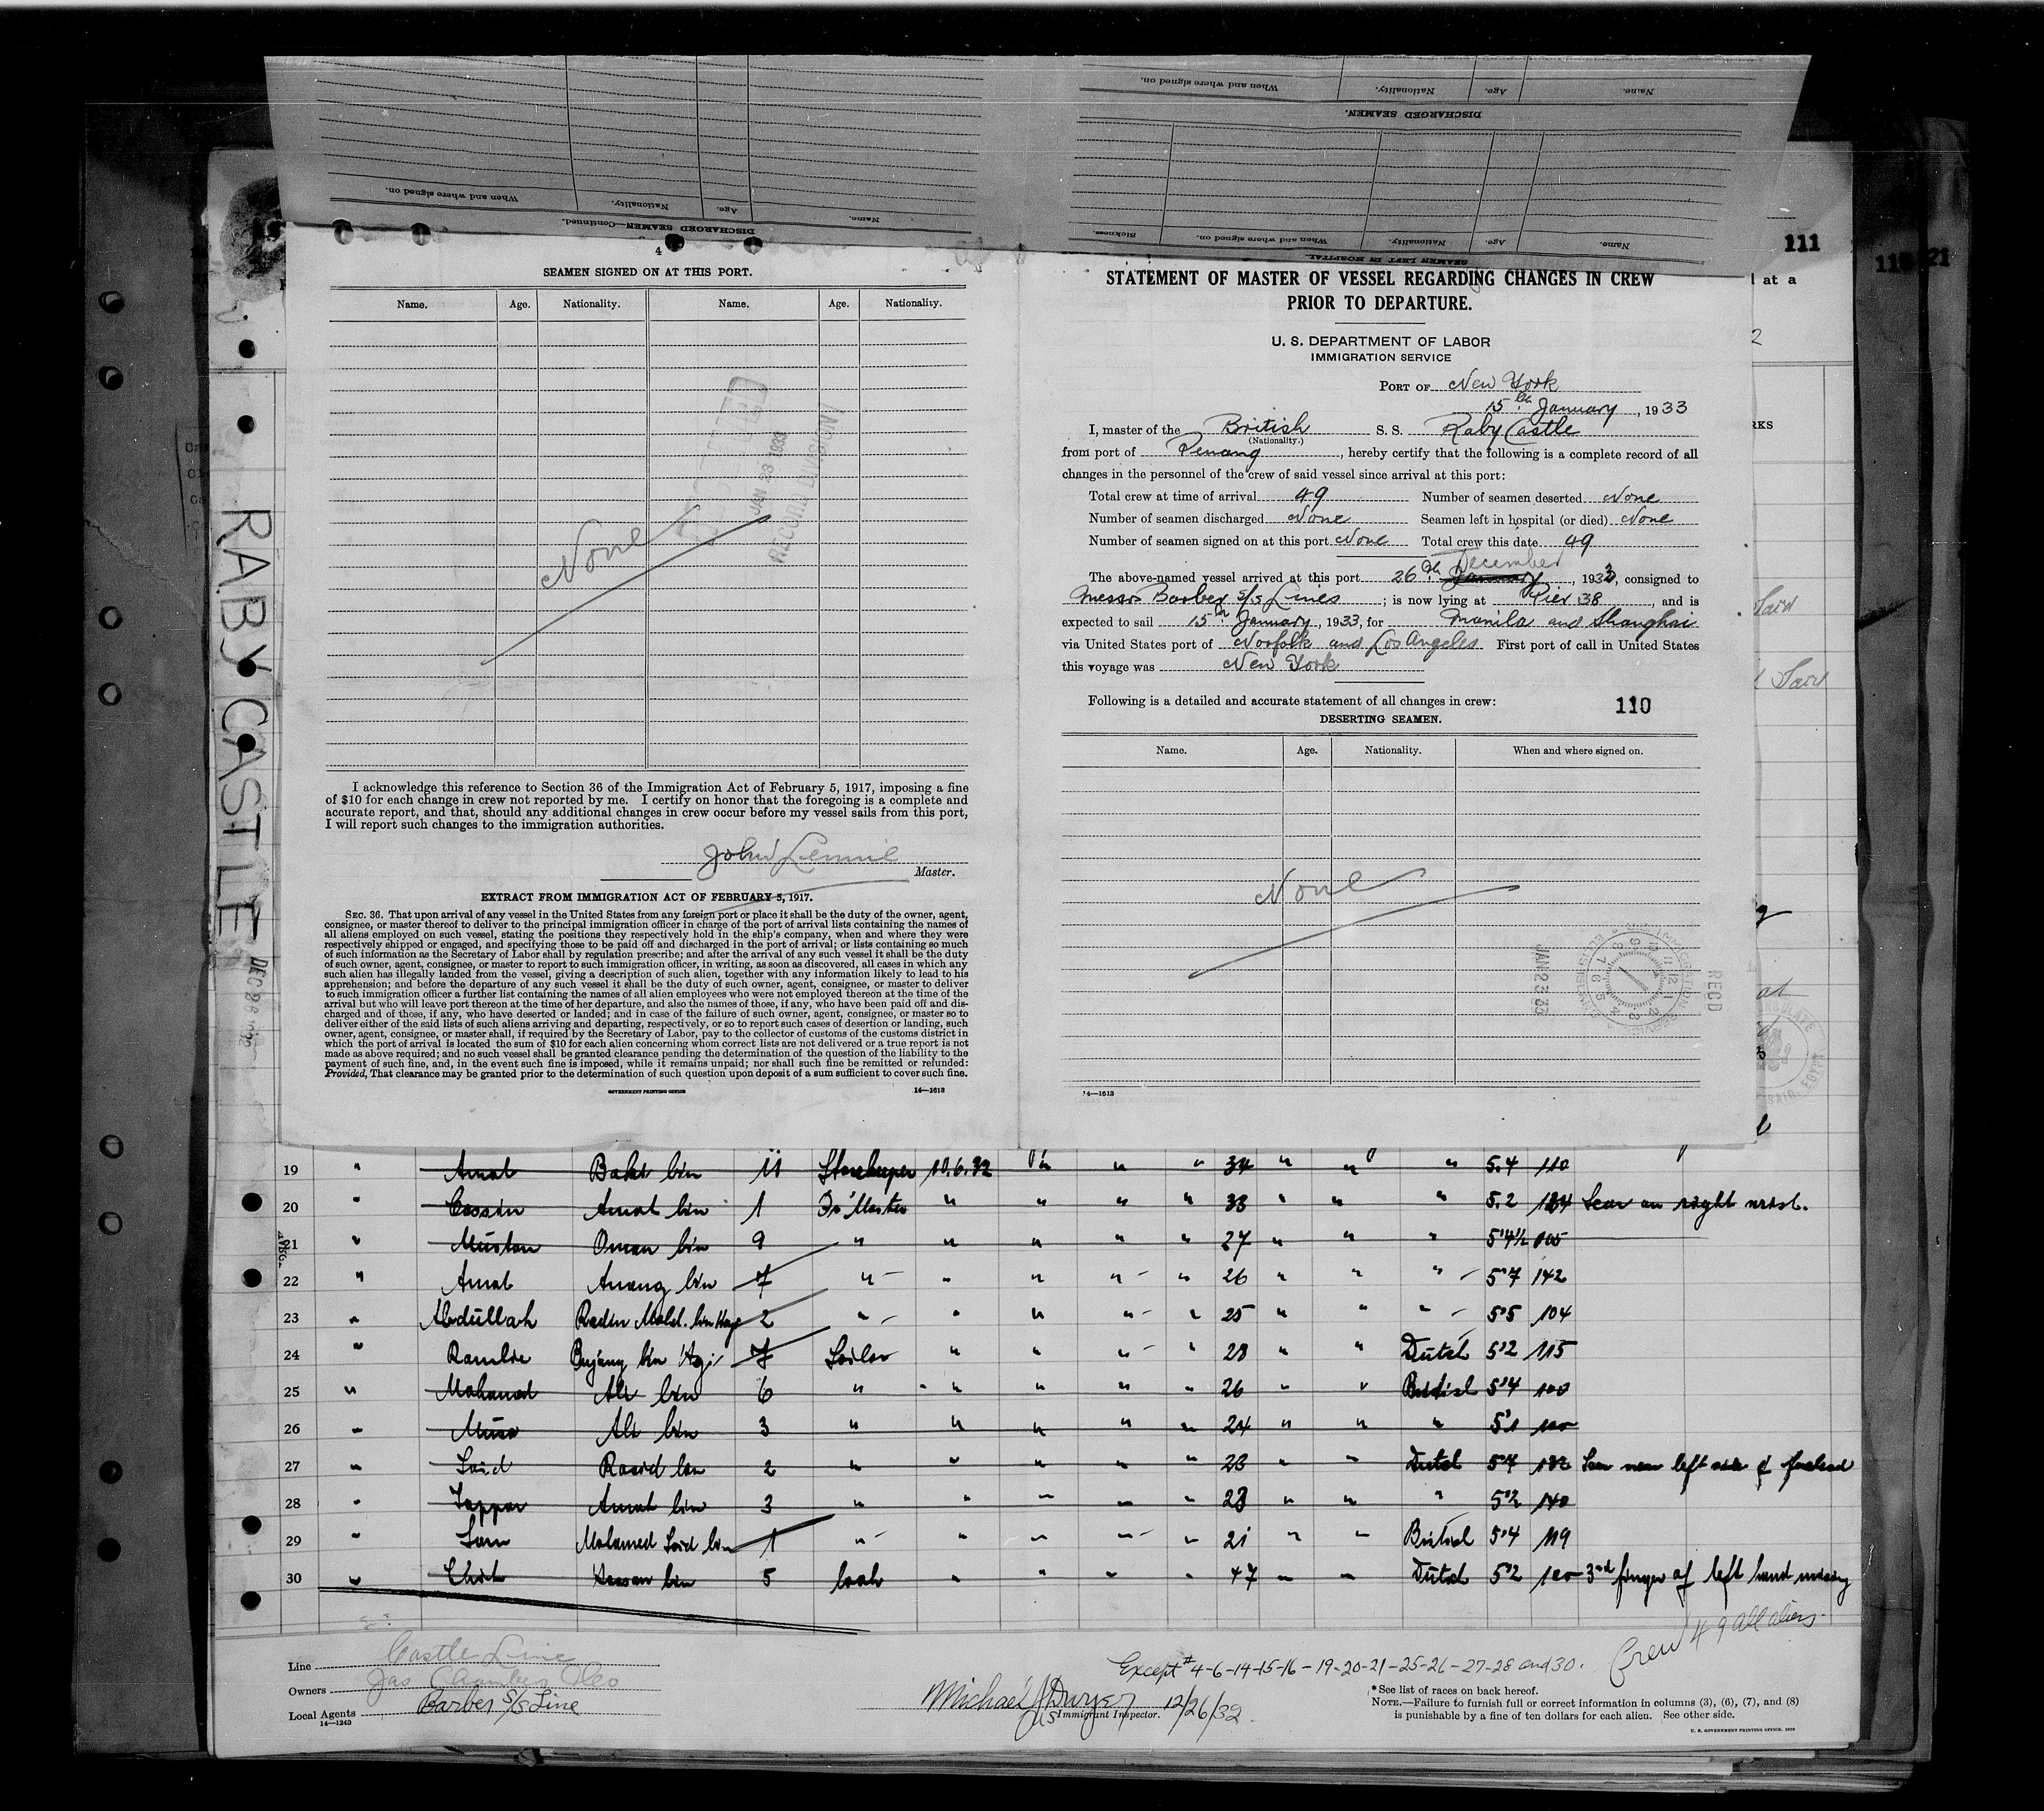 When and where signed on.
Nationality.
Age.
Name.
DISCHARGED SEAMEN—Continued.
When and where signed on.
Nationality.
Age.
Name.
DISCHARGED SEAMEN.
Sickness.
When and where signed on.
Nationality.
Age.
Name.
SEAMEN LEFT IN HOSPITAL.
111
21
at a
RABY CASTLE
DEC 26 1932
4
SEAMEN SIGNED ON AT THIS PORT.
Name. Age. Nationality. Name. Age. Nationality.
JAN 23 1933
RECORD DIVISION
None
I acknowledge this reference to Section 36 of the Immigration Act of February 5, 1917, imposing a fine
of $10 for each change in crew not reported by me. I certify on honor that the foregoing is a complete and
accurate report, and that, should any additional changes in crew occur before my vessel sails from this port,
I will report such changes to the immigration authorities.
John Lennie
Master.
EXTRACT FROM IMMIGRATION ACT OF FEBRUARY 5, 1917.
SEC. 36. That upon arrival of any vessel in the United States from any foreign port or place it shall be the duty of the owner, agent,
consignee, or master thereof to deliver to the principal immigration officer in charge of the port of arrival lists containing the names of
all aliens employed on such vessel, stating the positions they respectively hold in the ship's company, when and where they were
respectively shipped or engaged, and specifying those to be paid off and discharged in the port of arrival; or lists containing so much
of such information as the Secretary of Labor shall by regulation prescribe; and after the arrival of any such vessel it shall be the duty
of such owner, agent, consignee, or master to report to such immigration officer, in writing, as soon as discovered, all cases in which any
such alien has illegally landed from the vessel, giving a description of such alien, together with any information likely to lead to his
apprehension; and before the departure of any such vessel it shall be the duty of such owner, agent, consignee, or master to deliver
to such immigration officer a further list containing the names of all alien employees who were not employed thereon at the time of the
arrival but who will leave port thereon at the time of her departure, and also the names of those, if any, who have been paid off and dis-
charged and of those, if any, who have deserted or landed; and in case of the failure of such owner, agent, consignee, or master so to
deliver either of the said lists of such aliens arriving and departing, respectively, or so to report such cases of desertion or landing, such
owner, agent, consignee, or master shall, if required by the Secretary of Labor, pay to the collector of customs of the customs district in
which the port of arrival is located the sum of $10 for each alien concerning whom correct lists are not delivered or a true report is not
made as above required; and no such vessel shall be granted clearance pending the determination of the question of the liability to the
payment of such fine, and, in the event such fine is imposed, while it remains unpaid; nor shall such fine be remitted or refunded:
Provided, That clearance may be granted prior to the determination of such question upon deposit of a sum sufficient to cover such fine.
GOVERNMENT PRINTING OFFICE 14—1613
STATEMENT OF MASTER OF VESSEL REGARDING CHANGES IN CREW
PRIOR TO DEPARTURE.
U. S. DEPARTMENT OF LABOR
IMMIGRATION SERVICE
PORT OF New York
15th January, 1933
I, master of the British S. S. Raby Castle
(Nationality.)
from port of Penang, hereby certify that the following is a complete record of all
changes in the personnel of the crew of said vessel since arrival at this port:
Total crew at time of arrival 49 Number of seamen deserted None
Number of seamen discharged None Seamen left in hospital (or died) None
Number of seamen signed on at this port None Total crew this date 49
December
The above-named vessel arrived at this port 26th January, 1932, consigned to
Messrs Barber S/S Lines; is now lying at Pier 38, and is
expected to sail 15th January, 1933, for Manila and Shanghai
via United States port of Norfolk and Los Angeles First port of call in United States
this voyage was New York
Following is a detailed and accurate statement of all changes in crew: 110
DESERTING SEAMEN.
Name. Age. Nationality. When and where signed on.
None
JAN 23 33
RECD
14—1613
19 " Amat Baker bin 11 Storekeeper 10.6.32 " " " 34 " " " 5.4 110
20 " Cassim Amat bin 1 Qr Master " " " " 33 " " " 5.2 134 Scar on right wrist.
21 " Mustan Oman bin 9 " " " " " 27 " " " 5'4½ 105
22 " Amat Anang bin 7 " " " " " 26 " " " 5'7 142
23 " Abdullah Radin Mohd. bin Haji 2 " " " " " 25 " " " 5'5 104
24 " Ramlie Bujang bin Haji 7 Sailor " " " " 28 " " Dutch 5'2 115
25 " Mohamed Ali bin 6 " " " " " 26 " " British 5'4 100
26 " Musa Ali bin 3 " " " " " 24 " " " 5'1 100
27 " Said Rasid bin 2 " " " " " 23 " " Dutch 5'4 132 Scar near left side of forehead
28 " Jappar Amat bin 3 " " " " " 23 " " " 5'2 140
29 " Sam Mohamed Said bin 1 " " " " " 21 " " British 5'4 119
30 " Chik Hassan bin 5 Cook " " " " 47 " " Dutch 5'2 100 3rd finger of left hand missing
Crew 49 all aliens.
Line Castle Line
Owners Jas Chambers & Co
Local Agents Barber S/S Line
14—1240
Except # 4-6-14-15-16-19-20-21-25-26-27-28 and 30.
Michael J Dwyer 12/26/32
US Immigrant Inspector.
* See list of races on back hereof.
NOTE.—Failure to furnish full or correct information in columns (3), (6), (7), and (8)
is punishable by a fine of ten dollars for each alien. See other side.
U. S. GOVERNMENT PRINTING OFFICE: 1929